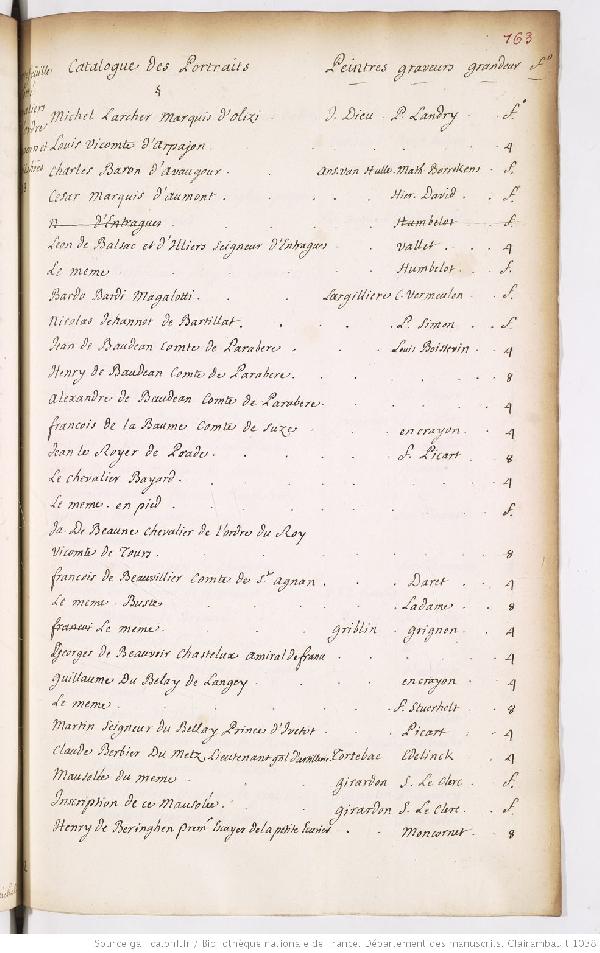 763
Catalogue des Portraits Peintres graveurs grandeur f°
4
Michel Larcher Marquis d'olizi J. Dieu P. Landry f°
Louis Vicomte d'arpajon 4
Charles Baron d'avaugour Ans. van Hulle Math. Borrekens f.
Cesar Marquis d'aumont Hier. David f.
N d'Entragues Humbelot f.
Leon de Balsac et d'Illiers Seigneur d'Entragues Vallet 4
Le meme Humbelot f.
Bardo Bardi Magalotti Largilliere C. Vermeulen f.
Nicolas Jehannot de Bartillat P. Simon f.
Jean de Baudean Comte de Parabere Louis Boissevin 4
Henry de Baudean Comte de Parabere 8
Alexandre de Baudean Comte de Parabere 4
francois de la Baume Comte de Suze en crayon 4
Jean le Royer de Prade f. Picart 8
Le chevalier Bayard 4
Le meme en pied f.
Ja De Beaune chevalier de l'ordre du Roy
Vicomte de Tours 8
francois de Beauvillier Comte de St. agnan Daret 4
Le meme Buste Ladame 8
francois Le meme Griblin Grignon 4
Georges de Beauvoir Chastelux amiral de franc 4
Guillaume Du Belay de Langey en crayon 4
Le meme f. Stuerhelt 8
Martin Seigneur du Bellay Prince d'Ivetot Picart 4
Claude Berbier Du Metz Lieutenant gñl d'artillerie Tortebac Edelinck 4
Mausolée du meme Girardon S. Le Clerc f.
Inscription de ce Mausolée Girardon S. Le Clerc f.
Henry de Beringhen prem.r Ecuyer de la petite Ecurie Moncornet 8
Source gallica.bnf.fr / Bibliothèque nationale de France. Département des manuscrits. Clairambault 1038